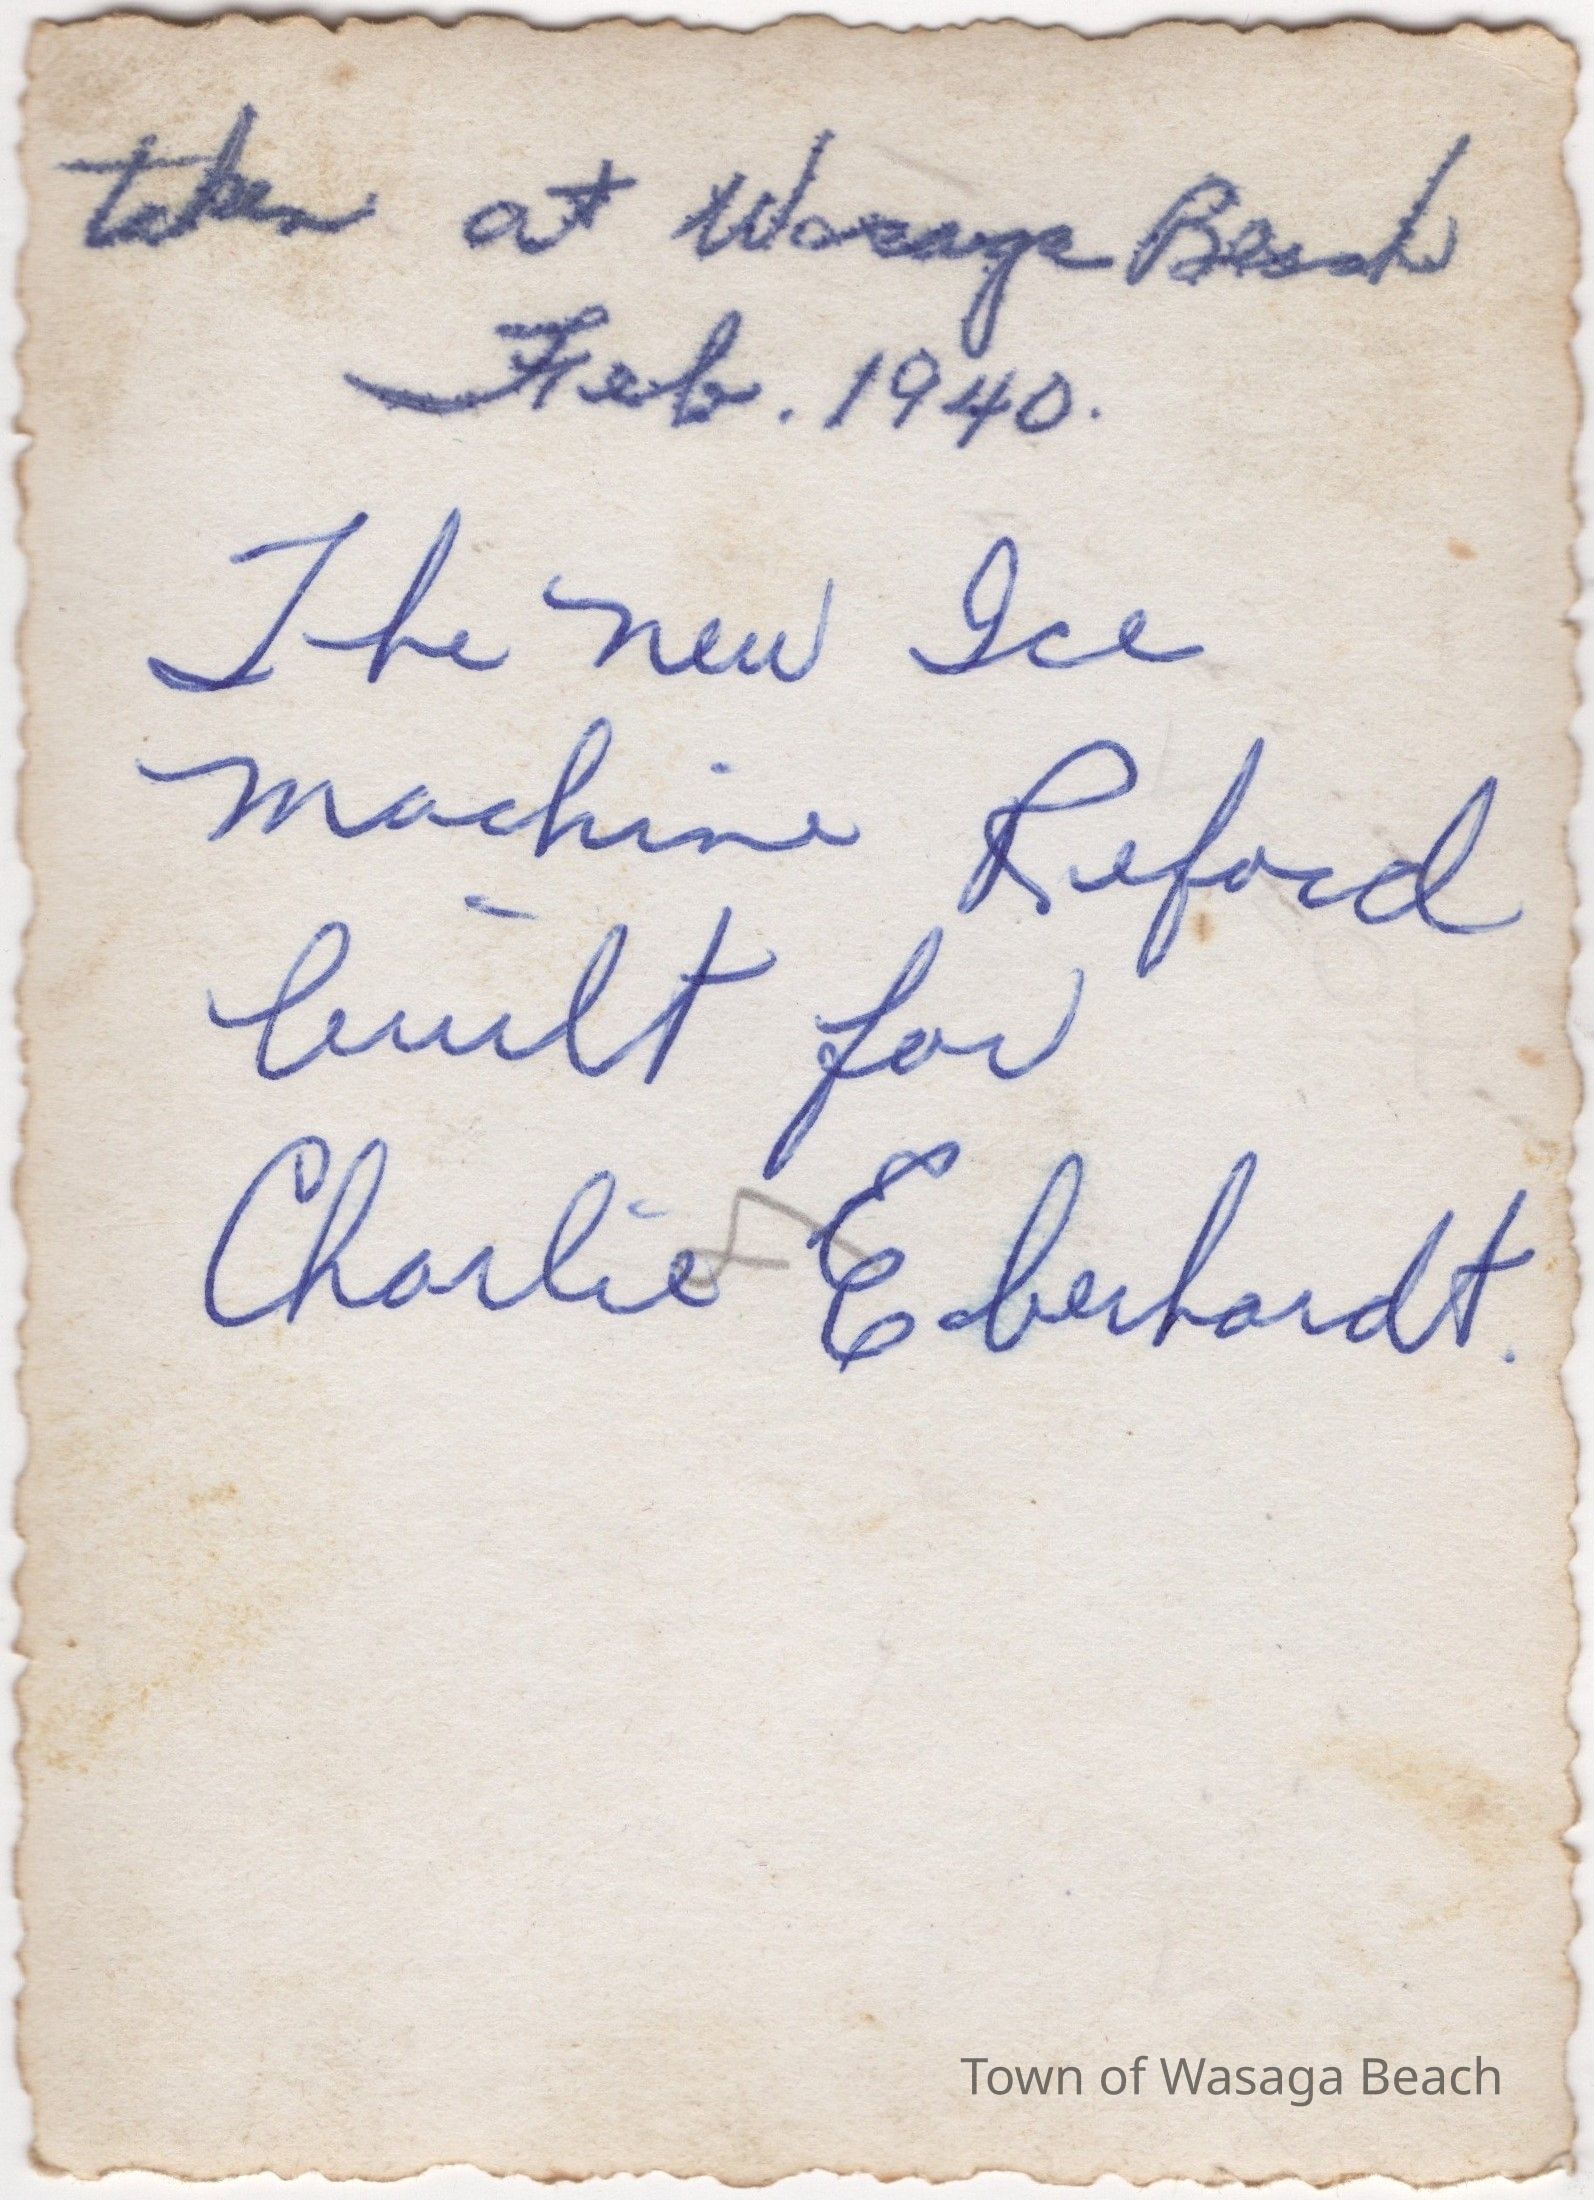 taken at Wasaga Beach
Feb. 1940.
The new Ice
machine Reford
built for
Charlie Eberhardt.
Town of Wasaga Beach